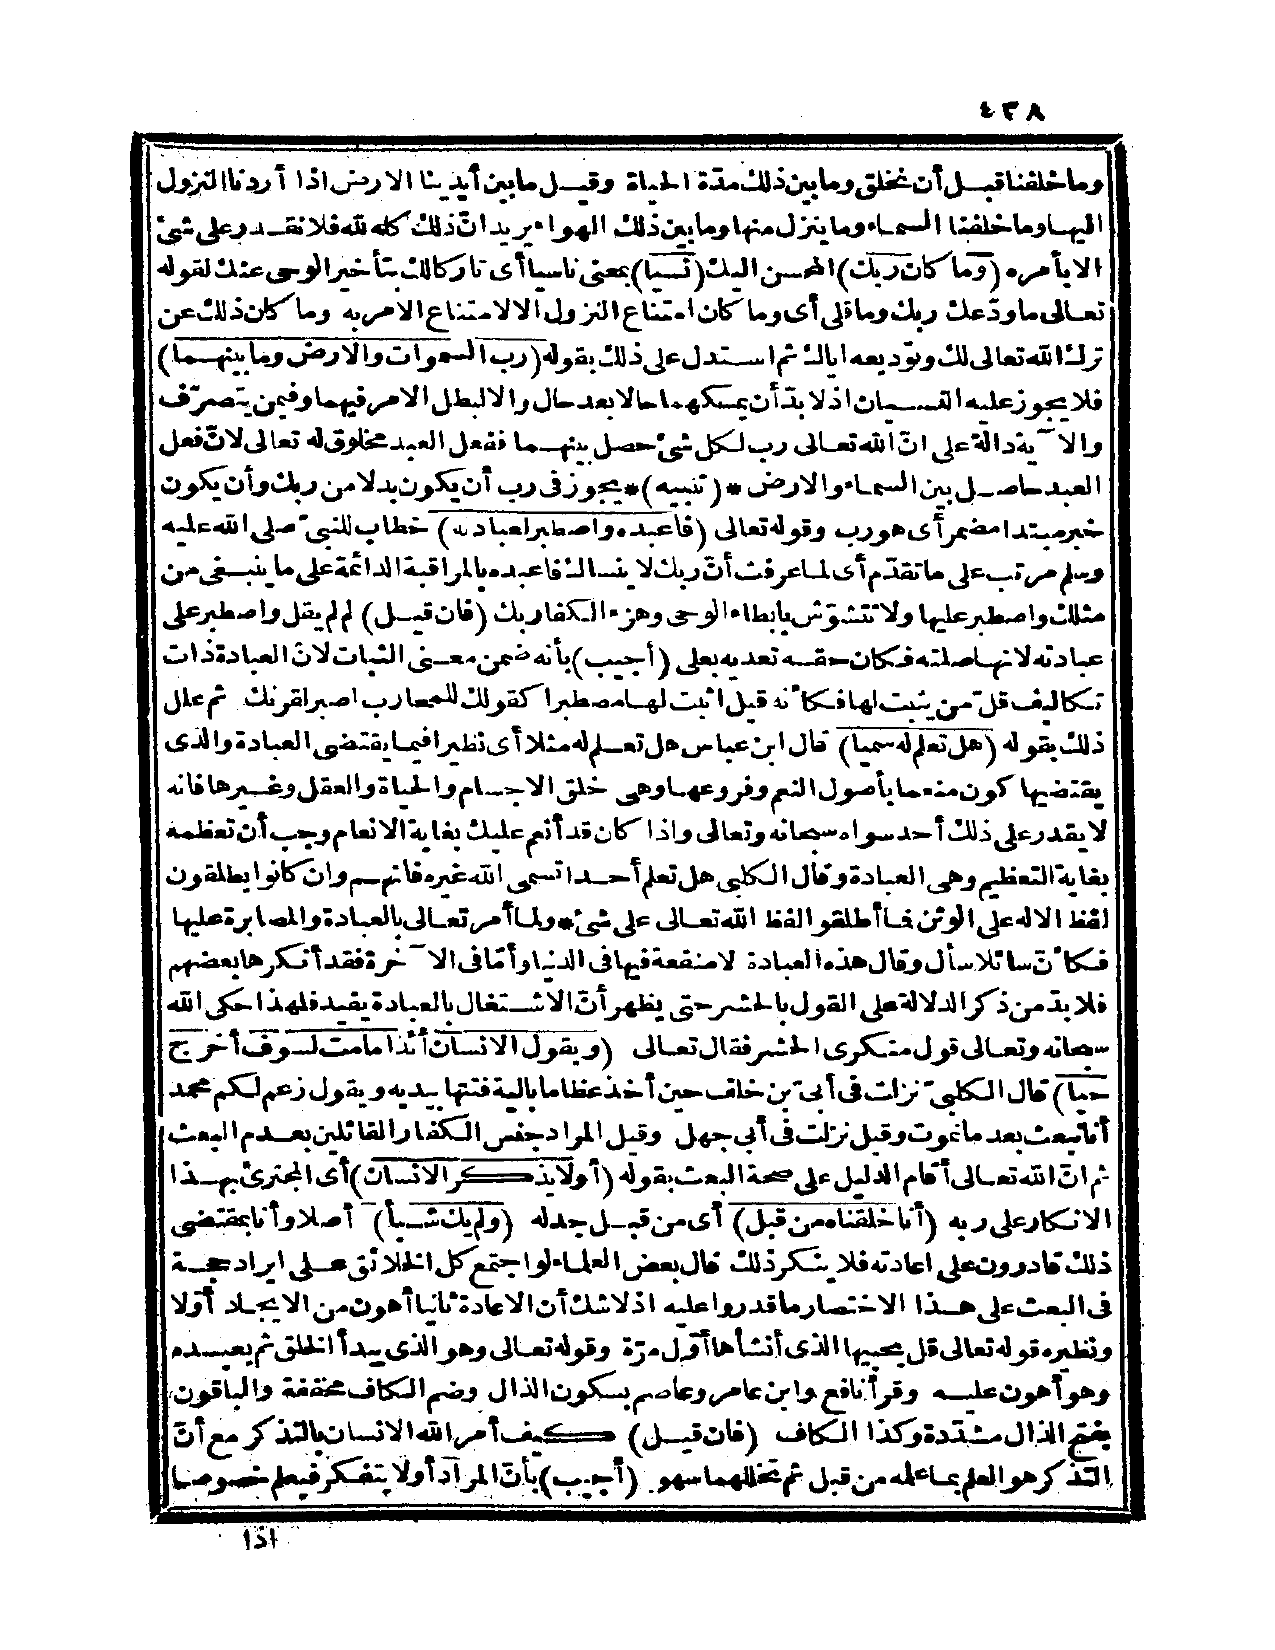 ٤٣٨
وما خلفنا قبل أن نخلق وما بين ذلك مدّة الحياة وقيل ما بين أيدينا الارض اذا أردنا النزول
اليها وما خلفنا السماء وما ينزل منها وما بين ذلك الهواء يريد انّ ذلك كله لله فلا نقدر على شئ
الا بأمره (وما كان ربك) المحسن اليك (نسيا) بمعنى ناسيا أى تاركا لك بتأخير الوحى عنك لقوله
تعالى ما ودّعك ربك وما قلى أى وما كان امتناع النزول الا لامتناع الامر به وما كان ذلك عن
ترك الله تعالى لك وتوديعه اياك ثم استدل على ذلك بقوله (رب السموات والارض وما بينهما)
فلا يجوز عليه النسيان اذ لا بدّ أن يمسكهما حالا بعد حال والا لبطل الامر فيهما وفيمن يتصرّف
والآية دالة على انّ الله تعالى رب لكل شئ حصل بينهما ففعل العبد مخلوق له تعالى لانّ فعل
العبد حاصل بين السماء والارض * (تنبيه) * يجوز فى رب أن يكون بدلا من ربك وأن يكون
خبر مبتدا مضمر أى هو رب وقوله تعالى (فاعبده واصطبر لعبادته) خطاب للنبىّ صلى الله عليه
وسلم مرتب على ما تقدّم أى لما عرفت أنّ ربك لا ينساك فاعبده بالمراقبة الدائمة على ما ينبغى من
مثلك واصطبر عليها ولا تتشوّش بابطاء الوحى وهزء الكفار بك (فان قيل) لم لم يقل واصطبر على
عبادته لانها صلته فكان حقه تعديه بعلى (أجيب) بأنه ضمن معنى الثبات لانّ العبادة ذات
تكاليف قلّ من يثبت لها فكأنه قيل اثبت لها مصطبرا كقولك للمحارب اصبر لقرنك ثم علل
ذلك بقوله (هل تعلم له سميا) قال ابن عباس هل تعلم له مثلا أى نظيرا فيما يقتضى العبادة والذى
يقتضيها كونه منعما بأصول النعم وفروعها وهى خلق الاجسام والحياة والعقل وغيرها فانه
لا يقدر على ذلك أحد سواه سبحانه وتعالى واذا كان قد أنعم عليك بغاية الانعام وجب أن تعظمه
بغاية التعظيم وهى العبادة وقال الكلبى هل تعلم أحدا تسمى الله غيره فانهم وان كانوا يطلقون
لفظ الاله على الوثن فما أطلقوا لفظ الله تعالى على شئ * ولما أمر تعالى بالعبادة والمصابرة عليها
فكأنّ سائلا سأل وقال هذه العبادة لا منفعة فيها فى الدنيا وأمّا فى الآخرة فقد أنكرها بعضهم
فلا بدّ من ذكر الدلالة على القول بالحشر حتى يظهر أنّ الاشتغال بالعبادة يفيد فلهذا حكى الله
سبحانه وتعالى قول منكرى الحشر فقال تعالى (ويقول الانسان أئذا ما مت لسوف أخرج
حيا) قال الكلبىّ نزلت فى أبىّ بن خلف حين أخذ عظاما بالية فتها بيديه ويقول زعم لكم محمد
أنا نبعث بعد ما نموت وقيل نزلت فى أبى جهل وقيل المراد جنس الكفار القائلين بعدم البعث
ثم انّ الله تعالى أقام الدليل على صحة البعث بقوله (أولا يذكر الانسان) أى المجترئ بهذا
الانكار على ربه (أنا خلقناه من قبل) أى من قبل جدله (ولم يك شيأ) أصلا وأنا بمقتضى
ذلك قادرون على اعادته فلا ينكر ذلك قال بعض العلماء لو اجتمع كل الخلائق على ايراد حجة
فى البعث على هذا الاختصار ما قدروا عليه اذ لا شك أن الاعادة ثانيا أهون من الايجاد أوّلا
ونظيره قوله تعالى قل يحييها الذى أنشأها أوّل مرّة وقوله تعالى وهو الذى يبدأ الخلق ثم يعيده
وهو أهون عليه وقرأ نافع وابن عامر وعاصم بسكون الذال وضم الكاف مخففة والباقون
بفتح الذال مشدّدة وكذا الكاف (فان قيل) كيف أمر الله الانسان بالتذكر مع أنّ
التذكر هو العلم بما علمه من قبل ثم تخللهما سهو (أجيب) بأنّ المراد أولا يتفكر فيعلم خصوصا
اذا